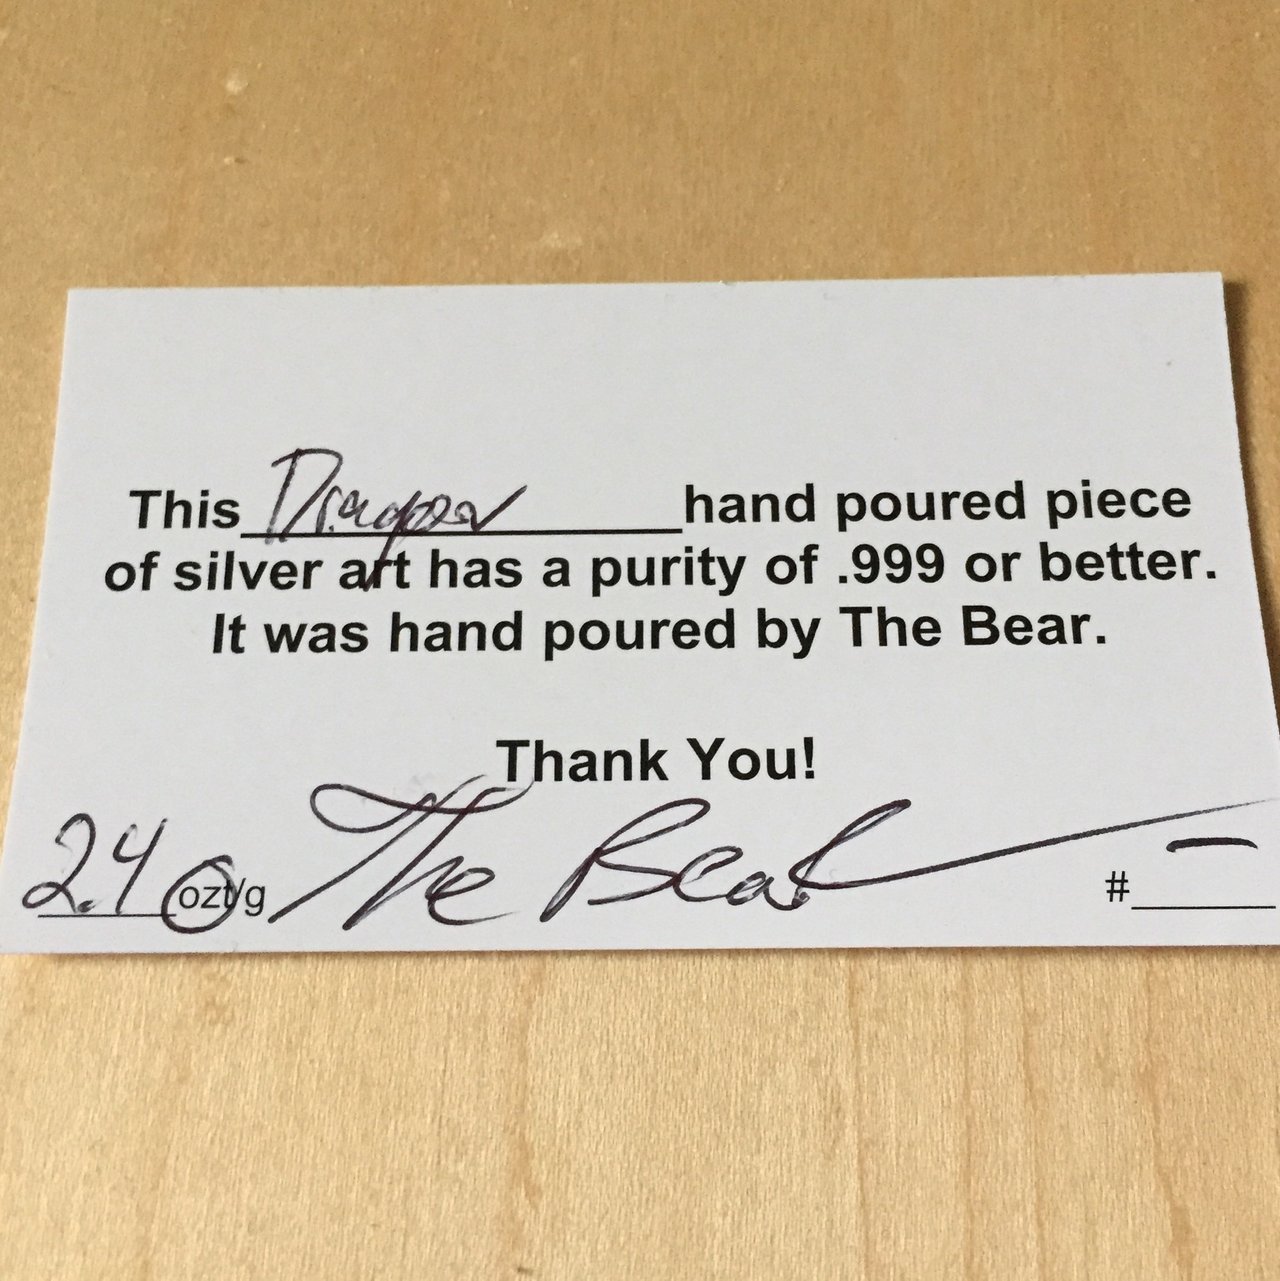 This Dragon hand poured piece
of silver art has a purity of .999 or better.
It was hand poured by The Bear.
Thank You!
2.4 ozt/g The Bear # —